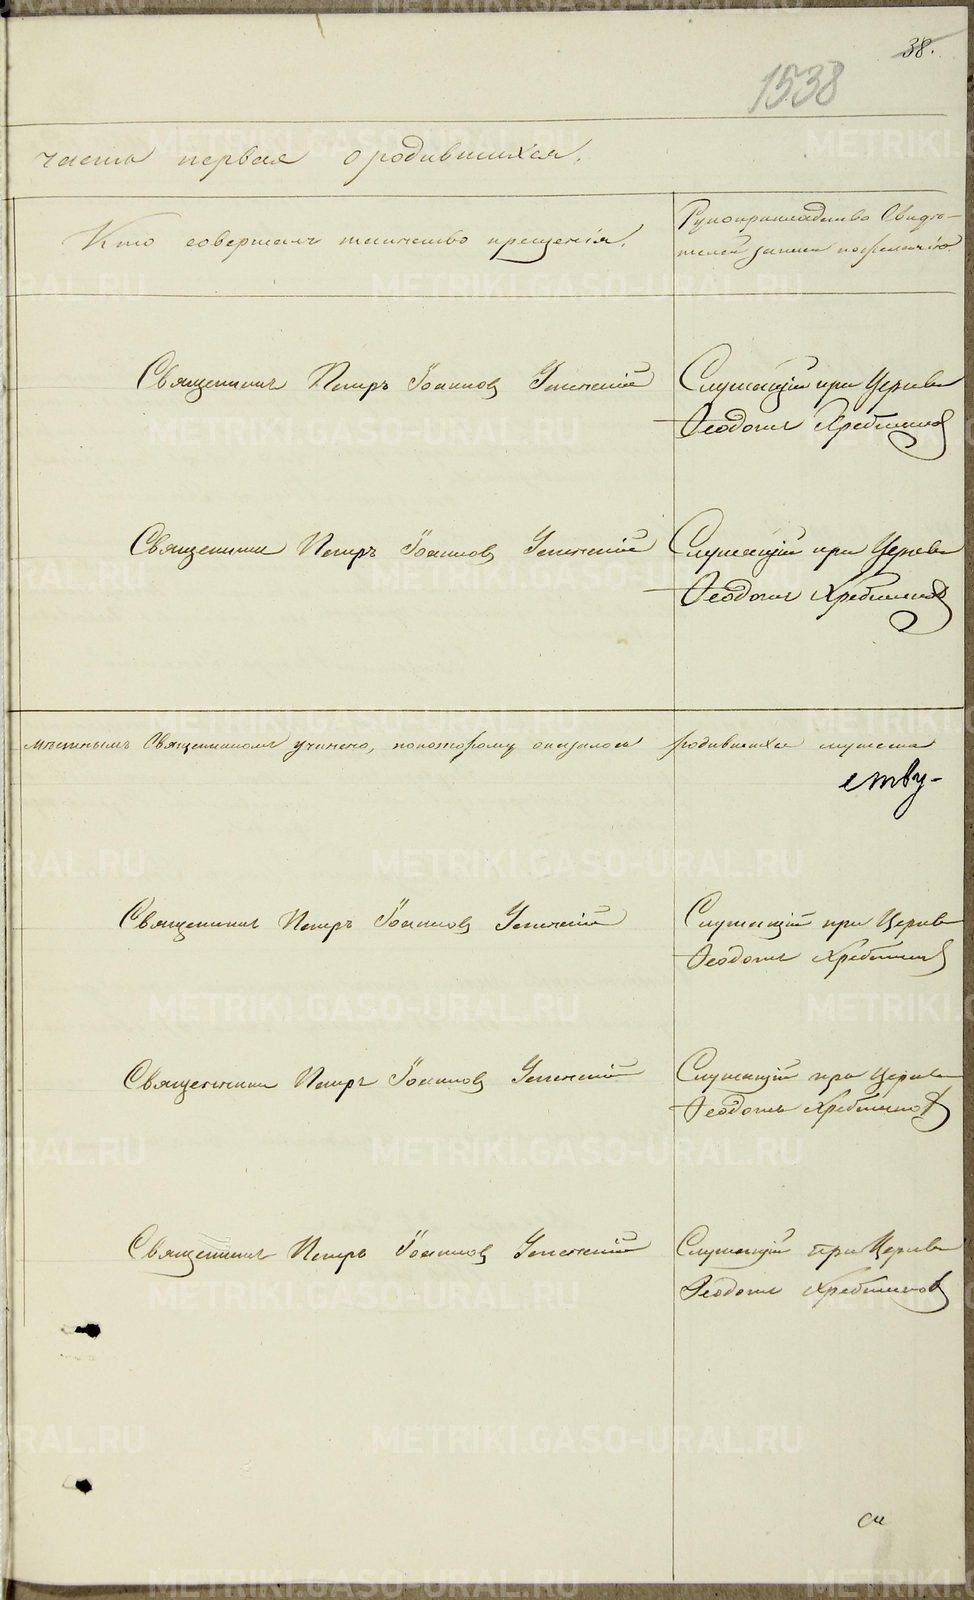 38.
1538
часть первая о родившихся.
Кто совершалъ таинство крещенія.
Рукоприкладство Свидѣ-
телей записи по желанію
Священникъ Петръ Іоанновъ
Служащій при Церкви
Ѳеодотъ Хребтиковъ
Священникъ Петръ Іоанновъ
Служащій при Церкви
Ѳеодотъ Хребтиковъ
мѣстнымъ Священникомъ учинено, по которому оказалось родившихся мужеска
ству-
Священникъ Петръ Іоанновъ
Служащій при Церкви
Ѳеодотъ Хребтиковъ
Священникъ Петръ Іоанновъ
Служащій при Церкви
Ѳеодотъ Хребтиковъ
Священникъ Петръ Іоанновъ
Служащій при Церкви
Ѳеодотъ Хребтиковъ
METRIKI.GASO-URAL.RU